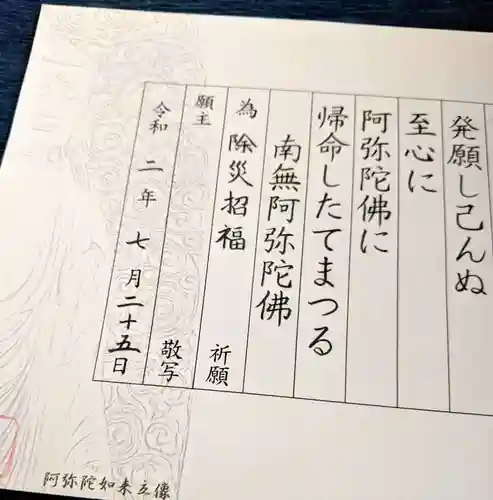 発願し己んぬ
至心に
阿弥陀佛に
帰命したてまつる
南無阿弥陀佛
為 除災招福 祈願
願主 敬写
令和 二 年 七 月 二十五 日
阿弥陀如来立像